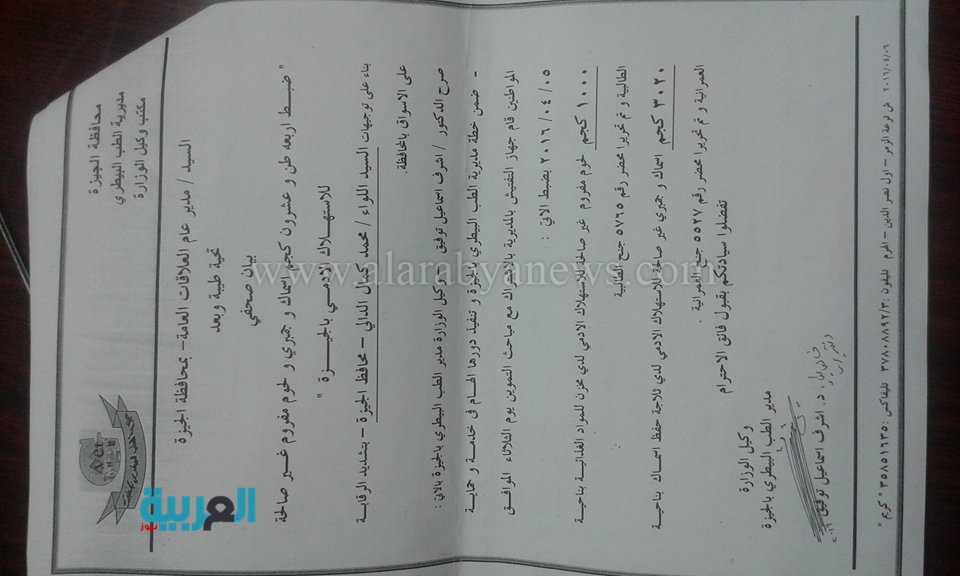 محافظة الجيزة
مديرية الطب البيطري
مكتب وكيل الوزارة
السيد / مدير عام العلاقات العامة – بمحافظة الجيزة
تحية طيبة وبعد
بيان صحفي
" ضبط اربعه طن و عشرون كجم اسماك و جمبري و لحوم مفروم غير صالحة
للاستهلاك الادمي بالجيـــزة "
بناء على توجيهات السيد اللواء / محمد كمال الدالي – محافظ الجيزة – بتشديد الرقابة
على الاسواق بالمحافظة.
صرح الدكتور / اشرف اسماعيل توفيق – وكيل الوزارة مدير الطب البيطري بالجيزة بالاتي :
- ضمن خطة مديرية الطب البيطري بالجيزة و تنفيذ دورها الهام فى خدمة و حماية
المواطنين قام جهاز التفتيش بالمديرية بالاشتراك مع مباحث التموين يوم الثلاثاء الموافق
٢٠١٦/٠٤/٠٥ بضبط الاتي :
١٠٠٠ كجم لحوم مفروم غير صالحة للاستهلاك الادمي لدي مخزن للمواد الغذائية بناحية
الطالبية و تم تحريرا محضر رقم ٥٧٦٥ جنح الطالبية
٣٠٢٠ كجم اسماك و جمبري غير صالحة للاستهلاك الادمي لدي ثلاجة حفظ اسماك بناحية
العمرانية و تم تحريرا محضر رقم ٥٥٢٧ جنح العمرانية .
تفضلوا سيادتكم بقبول فائق الاحترام
وكيل الوزارة
مدير الطب البيطري بالجيزة
د. اشرف اسماعيل توفيق
٢٠١٦/٠٤/٠٦ ش ترعة الزمر – اول نصر الدين – الهرم تليفون :٣٧٨٠٨٨٩٢/٣ تليفاكس :٣٥٨٥١٦٣٥ " كريم "
www.alarabyanews.com
العربية
نيوز